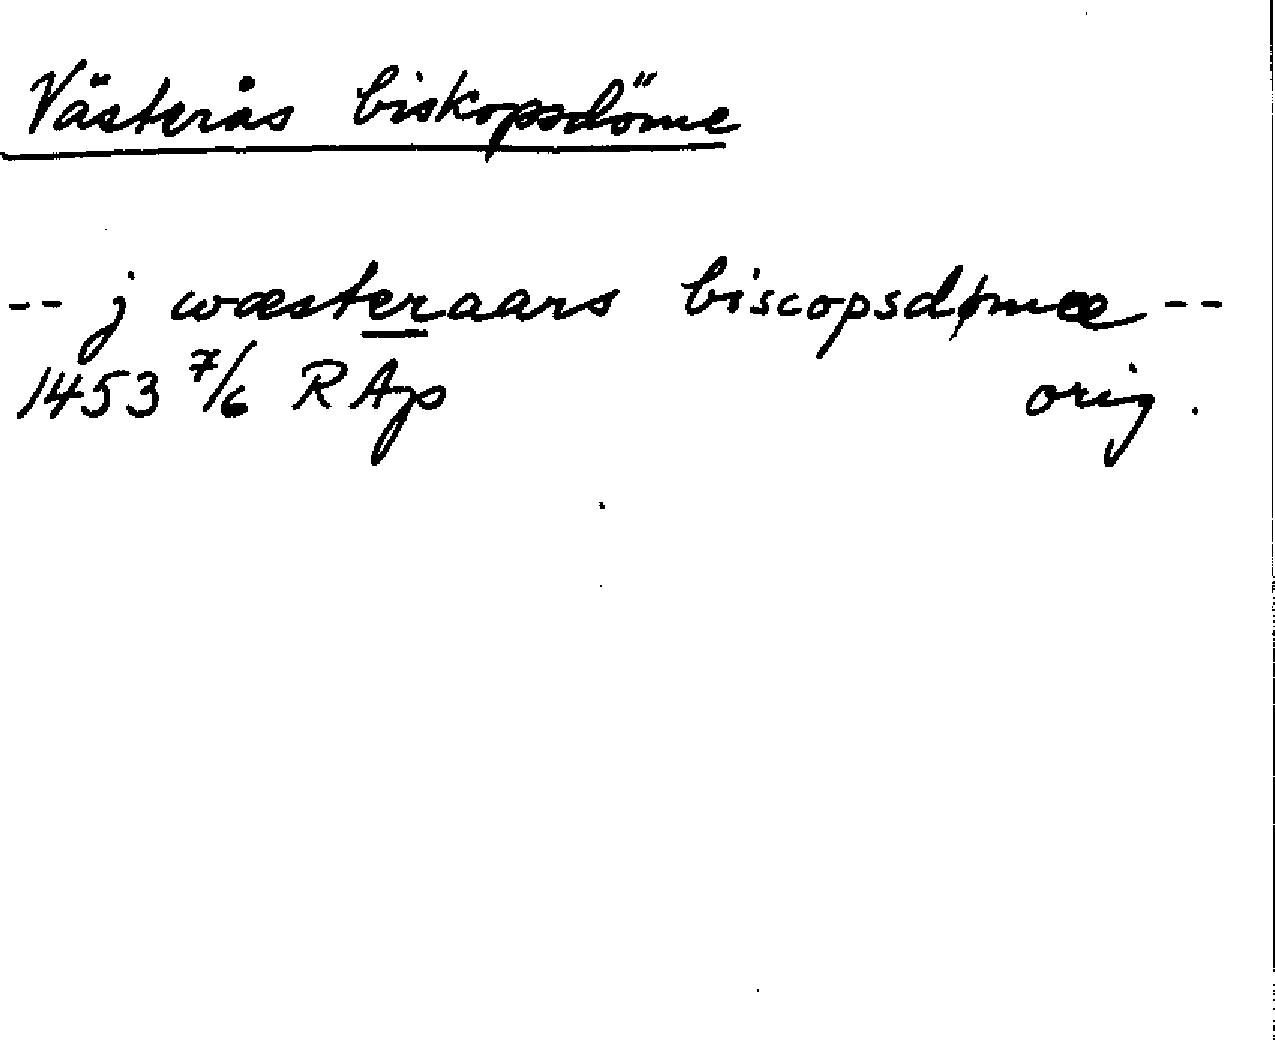 Västerås biskopsdöme
-- j wæsteraars biscopsdømæ --
1453 7/6 RAp orig.